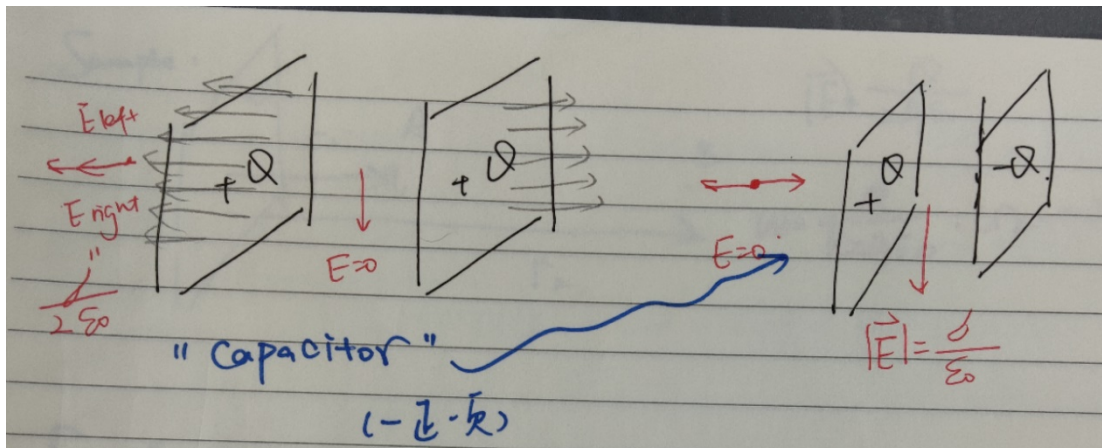 E left
E right
"
σ
2ε₀
+Q
E=0
+Q
E=0
+Q
-Q
|E⃗|=σ/ε₀
"Capacitor"
(一正一负)